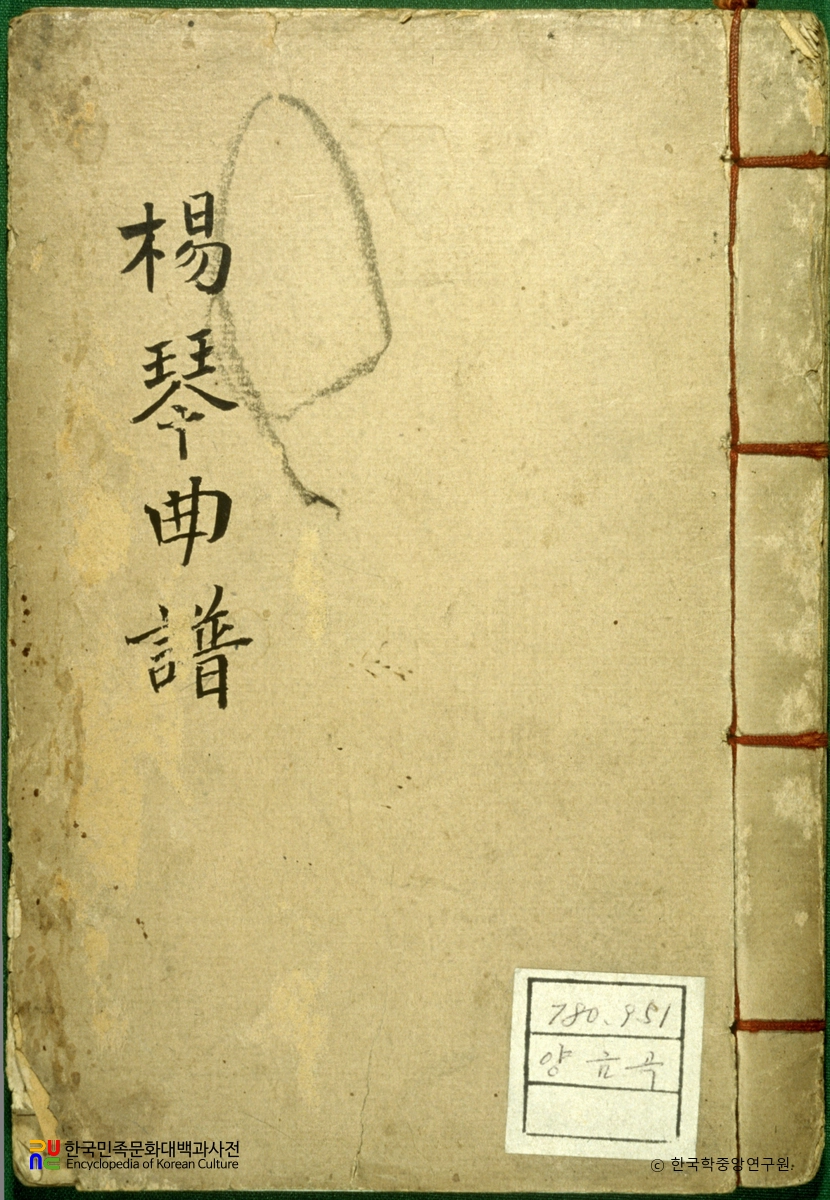 楊琴曲譜
780.951
양금곡
한국민족문화대백과사전
Encyclopedia of Korean Culture
© 한국학중앙연구원